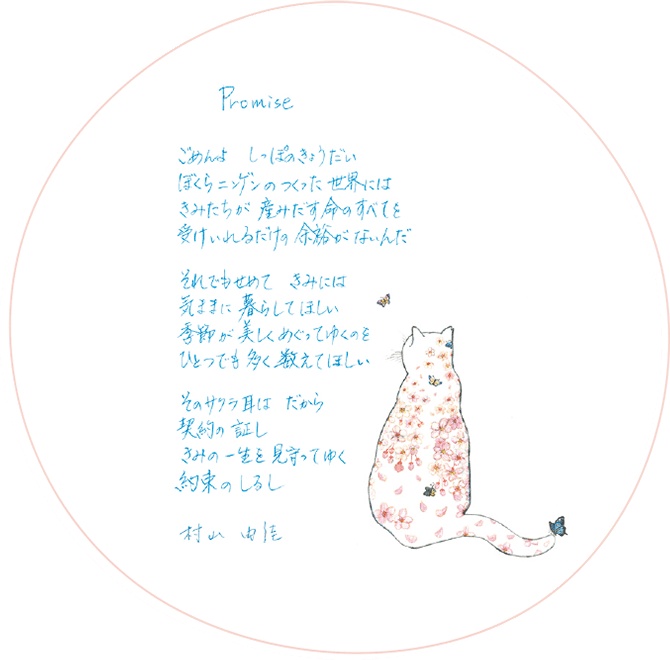 Promise
ごめんよ しっぽのきょうだい
ぼくらニンゲンの つくった 世界には
きみたちが 産みだす命のすべてを
受けいれるだけの 余裕が ないんだ
それでもせめて きみには
気ままに 暮らしてほしい
季節が 美しく めぐってゆくのを
ひとつでも 多く 数えてほしい
そのサクラ耳は だから
契約の 証し
きみの 一生を 見守ってゆく
約束の しるし
村山 由佳